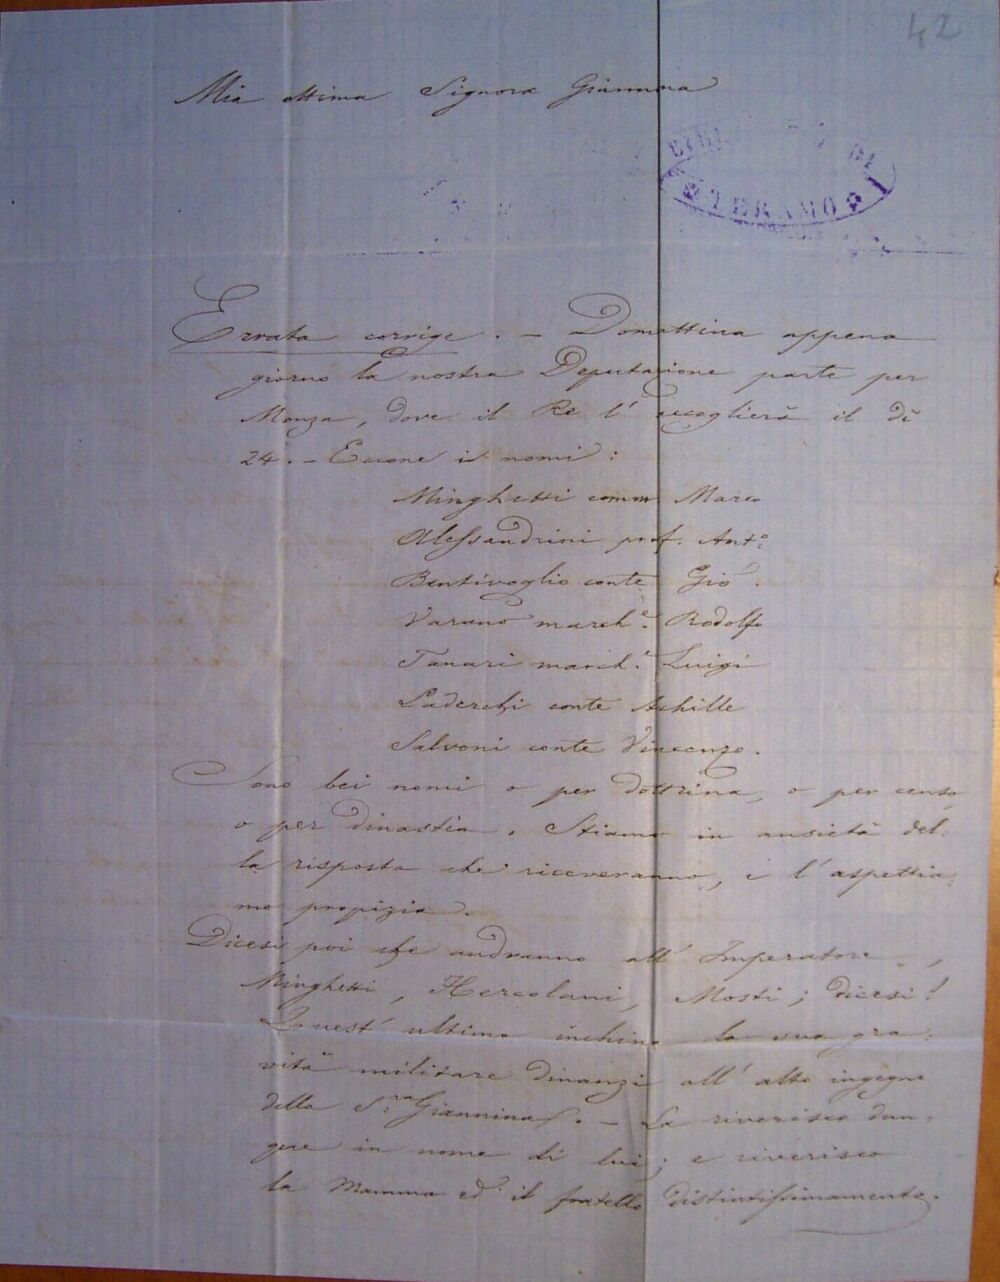 42
Mia ottima Signora Giannina
TERAMO
Errata corrige. - Domattina appena
giorno la nostra Deputazione parte per
Monza, dove il Re l'accoglierà il dì
24. - Eccone i nomi:
Minghetti comm Marco
Alessandrini prof. Ant.º
Bentivoglio conte Gio.
Varano march.e Rodolfo
Tanari march.e Luigi
Laderchi conte Achille
Salvoni conte Vincenzo.
Sono bei nomi o per dottrina, o per censo
o per dinastia. Stiamo in ansietà del=
la risposta che riceveranno, e l'aspettia=
mo propizia.
Dicesi poi che andranno all'Imperatore,
Minghetti, Hercolani, Mosti; dicesi!
Quest'ultimo inchina la sua gra=
vità militare dinanzi all'alto ingegno
della S.ra Giannina. - La riverisco dun=
que in nome di lui; e riverisco
la Mamma ed il fratello distintissimamente.